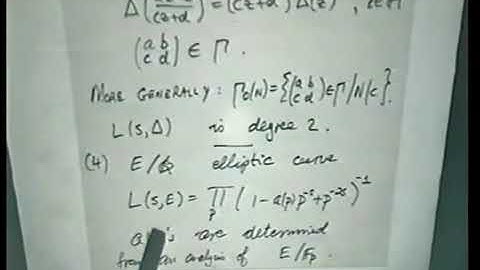 Δ(az+b/cz+d) = (cz+d)¹²Δ(z), z∈ℍ
(a b c d) ∈ Γ.
MORE GENERALLY: Γ₀(N) = {(a b c d) ∈ Γ / N|c}.
L(s,Δ) is degree 2.
(4) E/ℚ elliptic curve
L(s,E) = ∏ₚ (1 - a(p)p⁻ˢ + p⁻²ˢ)⁻¹
are determined
from an analysis of E/Fp